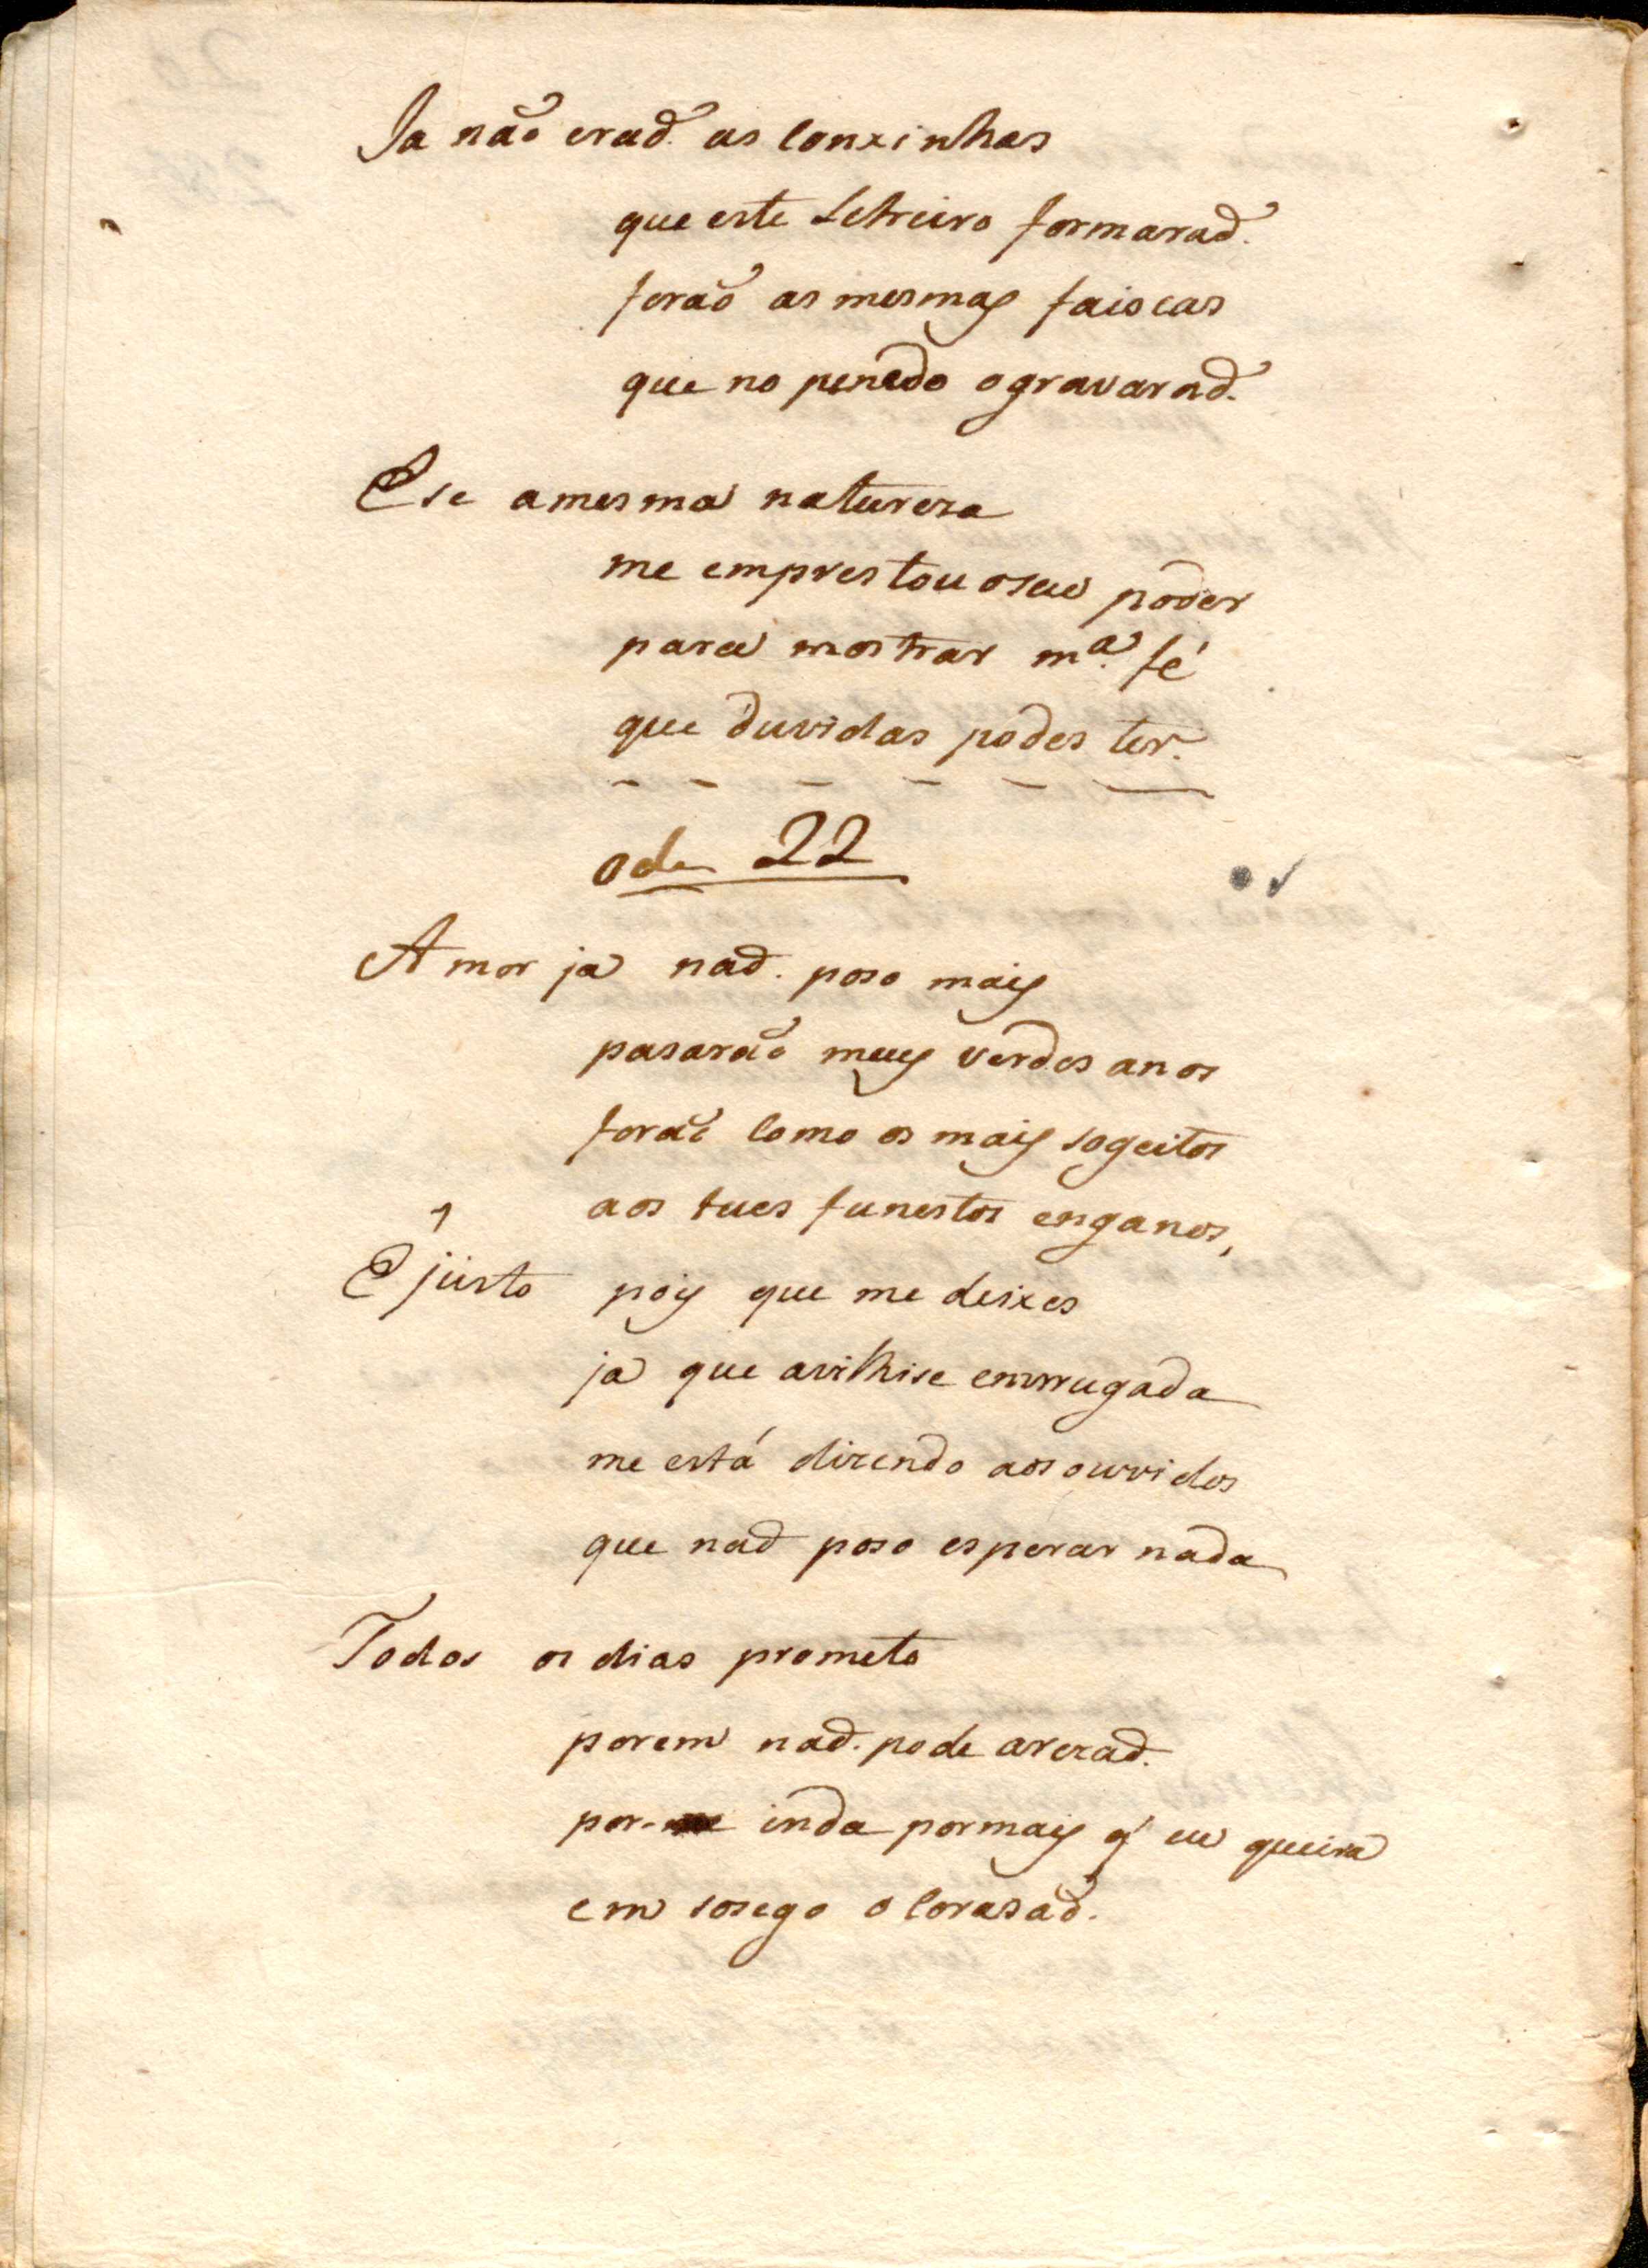 Ja não eraõ as conxinhas
que este Letreiro formaraõ.
foraõ as mesmas faiscas
que no penedo o gravaraõ.
E se a mesma natureza
me emprestou o seu poder
para mostrar mª. fé
que duvidas podes ter.
ode 22
Amor ja naõ. poso mais
pasaraõ meus verdes anos
foraõ como os mais sogeitos
aos teus funestos enganos,
E justo pois que me deixes
ja que a vilhise emrrugada
me está dizendo aos ouvidos
que naõ poso esperar nada
Todos os dias prometo
porem naõ. pode a rezaõ.
por inda por mais q eu queira
em sosego o corasaõ.